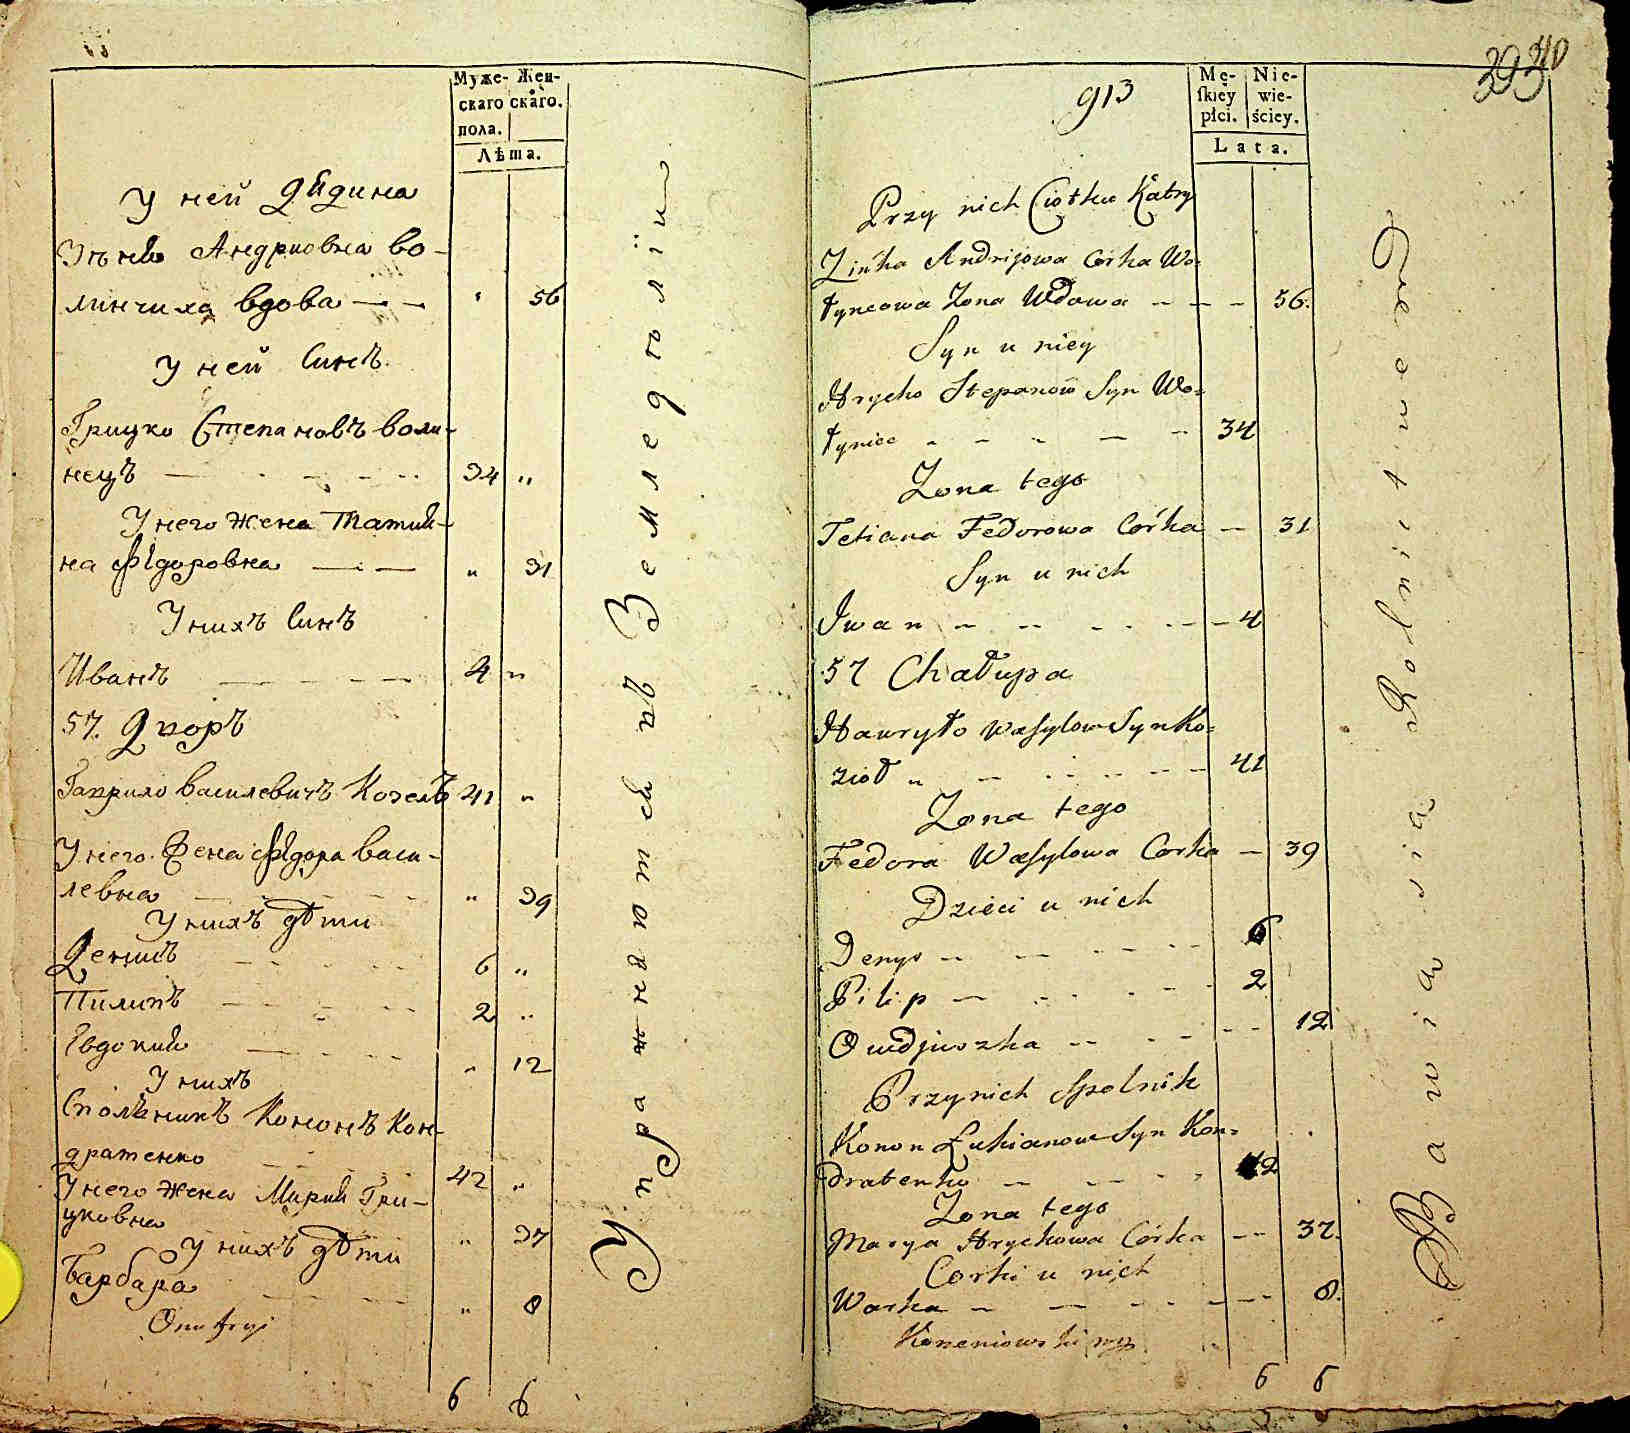 Муже- Жен-
скаго скаго.
пола.
Лѣта.
У ней Дядина
Зѣнѣя Андриовна Во-
линчиха вдова — — " 56
У ней Синъ
Грицко Степановъ Воли-
нецъ — 34 "
У него жена Татия-
на Фядоровна — — " 31
У нихъ Синъ
Иванъ — 4 "
57. Дворъ
Гаврило Василевичъ Козелъ 41 "
У него жена Фядора Васи-
левна " 39
У нихъ дѣти
Денисъ 6 "
Пилипъ 2 "
Евдокия " 12
У нихъ
Сполникъ Кононъ Кон-
дратенко 42 "
У него жена Мария Гри-
цковна " 37
У нихъ дѣти
Барбара " 8
Onufryi
6 6
Упражняются въ Земледѣлїи
393 40
913
Mę- Nie-
skiey wie-
płci. ściey.
Lata.
Przy nich Ciotka Katry
Zinka Andrijowa Corka Wo=
łyncowa Zona Wdowa — — — 56.
Syn u niey
Hrycko Stepanow Syn Wo=
łyniec — 34
Zona tego
Tetiana Fedorowa Corka — 31
Syn u nich
Iwan — 4
57 Chałupa
Hawryło Wasylow Syn Ko=
zioł — 41
Zona tego
Fedora Wasylowa Corka — 39
Dzieci u nich
Denys — 6
Pilip — 2
Owdjuszka — 12
Przy nich Spolnik
Konon Łukianow Syn Kon=
dratenko — 42
Zona tego
Marya Hryckowa Córka — 37.
Corki u nich
Warka — 8.
Korzeniowski
6 6
Bawią się Rolnictwem